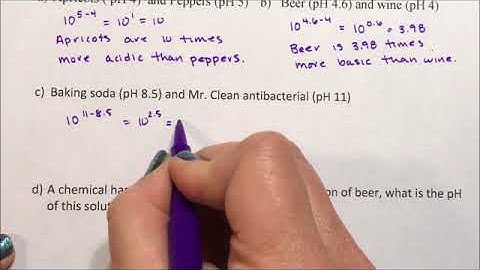 Apricots ( pH 4) and Peppers (pH 5) b) Beer (pH 4.6) and wine (pH 4)
10^5-4 = 10^1 = 10
Apricots are 10 times
more acidic than peppers.
10^4.6-4 = 10^0.6 = 3.98
Beer is 3.98 times
more basic than wine.
c) Baking soda (pH 8.5) and Mr. Clean antibacterial (pH 11)
10^11-8.5 = 10^2.5 =
d) A chemical ha on of beer, what is the pH
of this solut